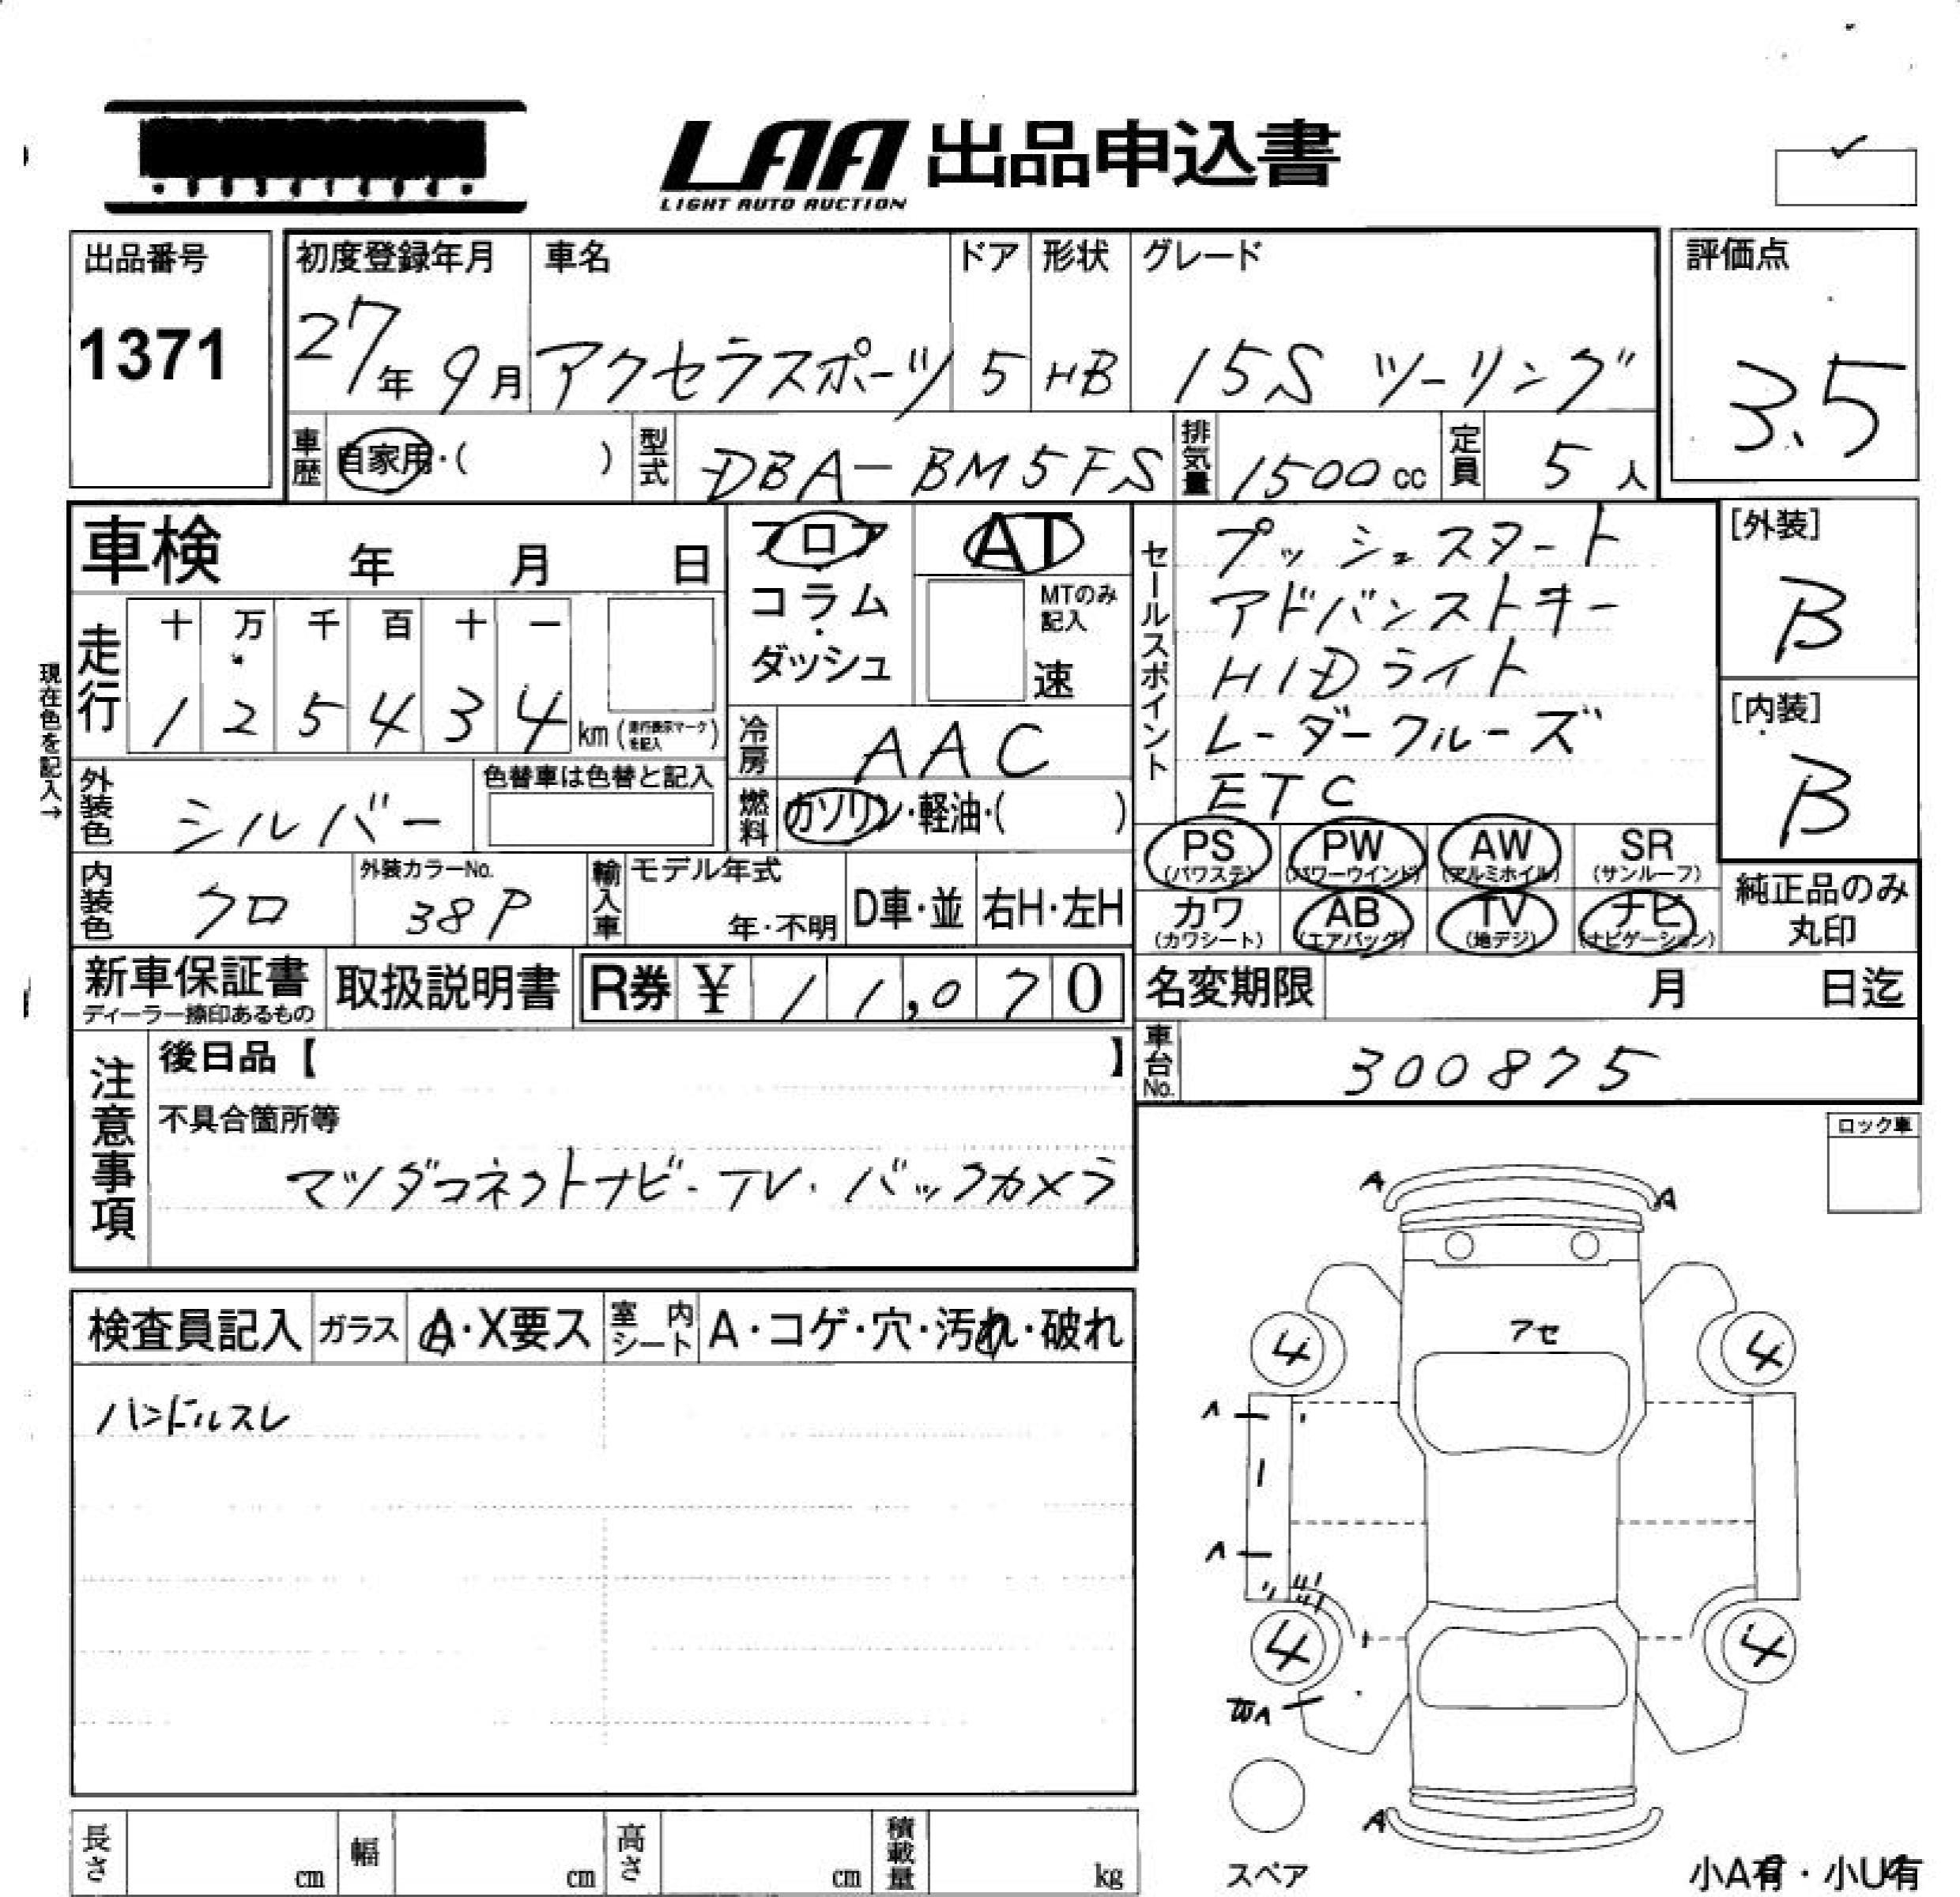 LAA 出品申込書
LIGHT AUTO AUCTION
出品番号
1371
初度登録年月
27年 9月
車名
アクセラスポーツ
ドア
5
形状
HB
グレード
15S ツーリング
評価点
3.5
車歴 自家用・( )
型式 DBA-BM5FS
排気量 1500cc
定員 5人
車検 年 月 日
フロア・コラム・ダッシュ
AT
MTのみ記入
速
セールスポイント
プッシュスタート
アドバンストキー
HIDライト
レーダークルーズ
ETC
[外装]
B
[内装]
B
現在色を記入→
走行
十 万 千 百 十 一
1 2 5 4 3 4 km (走行表示マークを記入)
冷房 AAC
外装色 シルバー
色替車は色替と記入
燃料 ガソリン・軽油・( )
PS (パワステ)
PW (パワーウインド)
AW (アルミホイル)
SR (サンルーフ)
カワ (カワシート)
AB (エアバッグ)
TV (地デジ)
ナビ (ナビゲーション)
純正品のみ丸印
内装色 クロ
外装カラーNo.
38P
輸入車
モデル年式
年・不明
D車・並
右H・左H
新車保証書
ディーラー捺印あるもの
取扱説明書
R券 ¥ 11,070
名変期限 月 日迄
車台No. 300875
注意事項
後日品【 】
不具合箇所等
マツダコネクトナビ・TV・バックカメラ
ロック車
検査員記入
ガラス
A・X要ス
室内シート
A・コゲ・穴・汚れ・破れ
ハンドルスレ
A A
アセ
4 4
4 4
A
スペア
小A有・小U有
長さ cm
幅 cm
高さ cm
積載量 kg